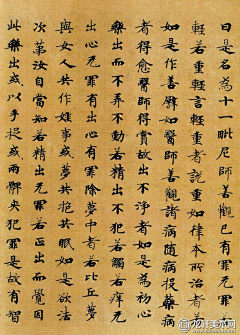 曰是名為十一毗尼師善觀已有罪无
輕若重輕言輕重者說重如律本所治者若
如是作善譬如醫師善觀諸病隨病投藥病
者得愈醫師得賞故出不淨者如是為初心
樂出而不弄不動若精出不犯若觸痒无
出心无罪有出心有罪除夢中者若比丘夢
與女人共作婬事或夢共抱共眠如是欲法
次第汝自當知若精出无罪若正出而覺因
此樂出或以手捉或兩髀夾犯罪是故有智